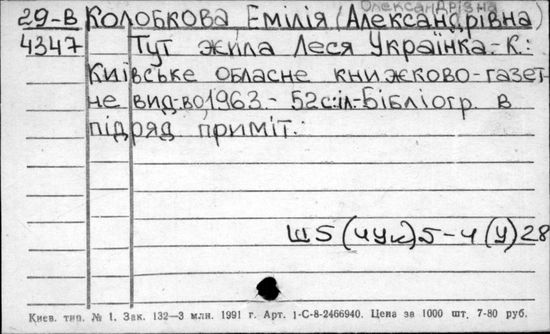 Олександрівна
29-В Колобкова, Емілія (Александрівна)
4347 Тут жила Леся Українка.- К.:
Київське обласне книжково-газет-
не вид-во, 1963.- 52с:іл.-Бібліогр. в
підряд, приміт.
Ш5(4Ук)5-4(У)28
Киев. тип. № 1. Зак. 132—3 млн. 1991 г. Арт. 1-С-8-2466940. Цена за 1000 шт. 7-80 руб.